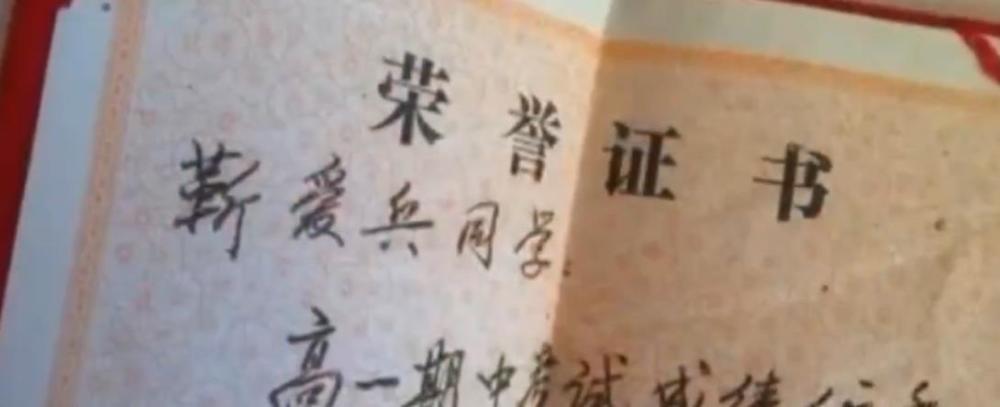 荣誉证书
蕲爱兵同学:
高一期中考试成绩优秀